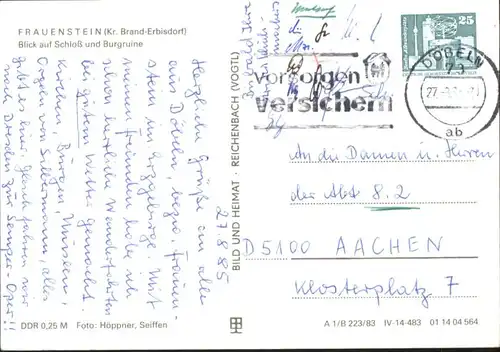 FRAUENSTEIN (Kr. Brand-Erbisdorf)
Blick auf Schloß und Burgruine
27.8.85
Herzliche Grüße an alle
aus Döbeln, bezw. Frauen-
stein im Erzgebirge. Mit
meinen Freunden habe ich
schon herrliche Wanderfahrten
bei gutem Wetter gemacht.
Kirchen, Burgen, Museen,
Orgeln von Silbermann, alles
gibt es hier. Gleich fahren wir
nach Dresden zur Semper-Oper!!
DDR 0,25 M Foto: Höppner, Seiffen
BILD UND HEIMAT · REICHENBACH (VOGTL)
25
vorsorgen
versichern
DÖBELN
73
ab
An die Damen u. Herren
der Abt 8.2
D5100 AACHEN
Klosterplatz 7
A 1/B 223/83 IV-14-483 01 14 04 564